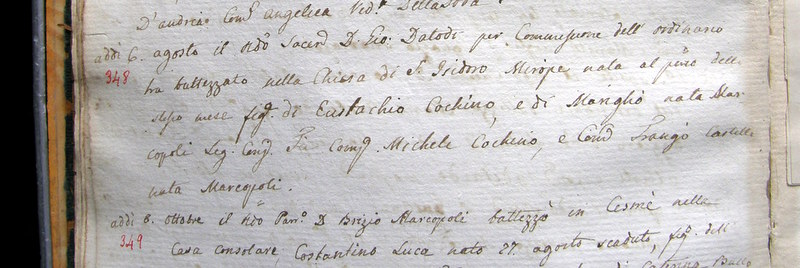 D'andria Com. Angelica Ved. Dellasoda
addì 6. agosto il Rdo Sacerd. D. Gio. Dalodi per Commissione dell' ordinario
348 ha battezzato nella Chiesa di S. Isidoro Mirope nata al primo dello
stesso mese fig. di Eustachio Cochino, e di Marighò nata Mar-
copoli Leg. Cong. Fu Comp. Michele Cochino, e Com. Frangò Castelli
nata Marcopoli.
addì 8. ottobre il Rdo Parr.o D. Brizio Marcopoli battezzò in Cesmè nella
349 Casa consolare Costantino Luca nato 27. agosto scaduto, fig. dell